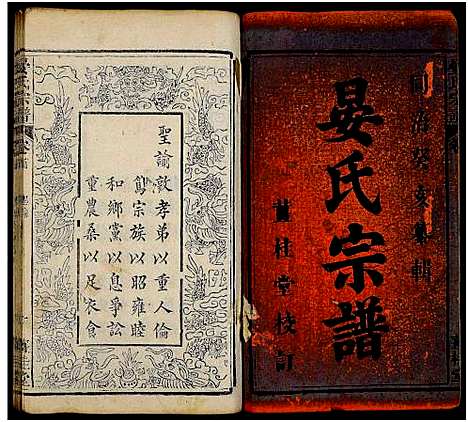 同治癸亥纂輯
晏氏宗譜
桂堂校訂
聖諭敦孝弟以重人倫
篤宗族以昭雍睦
和鄉黨以息爭訟
重農桑以足衣食
晏氏宗譜